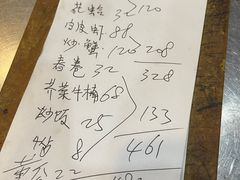 花蛤 32 120
白皮虾 88
炒蟹 120 208
春卷 32 328
芥菜牛楠 68
炒饭 25 133
8 461
22